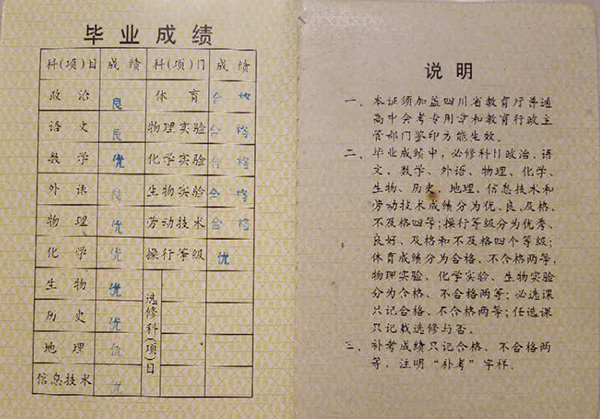 毕业成绩
科(项)目 成绩 科(项)门 成绩
政治 良 体育 合格
语文 良 物理实验 合格
数学 优 化学实验 合格
外语 良 生物实验 合格
物理 优 劳动技术 合格
化学 优 操行等级 优
生物 优 选修科(项)目
历史 优
地理 优
信息技术 优
说明
一、本证须加盖四川省教育厅普通
高中会考专用章和教育行政主
管部门钢印方能生效。
二、毕业成绩中，必修科目政治、语
文、数学、外语、物理、化学、
生物、历史、地理、信息技术和
劳动技术成绩分为优、良、及格、
不及格四等；操行等级分为优秀、
良好、及格和不及格四个等级；
体育成绩分为合格、不合格两等，
物理实验、化学实验、生物实验
分为合格、不合格两等；必选课
只记合格、不合格两等；任选课
只记载选修与否。
三、补考成绩只记合格、不合格两
等，注明“补考”字样.